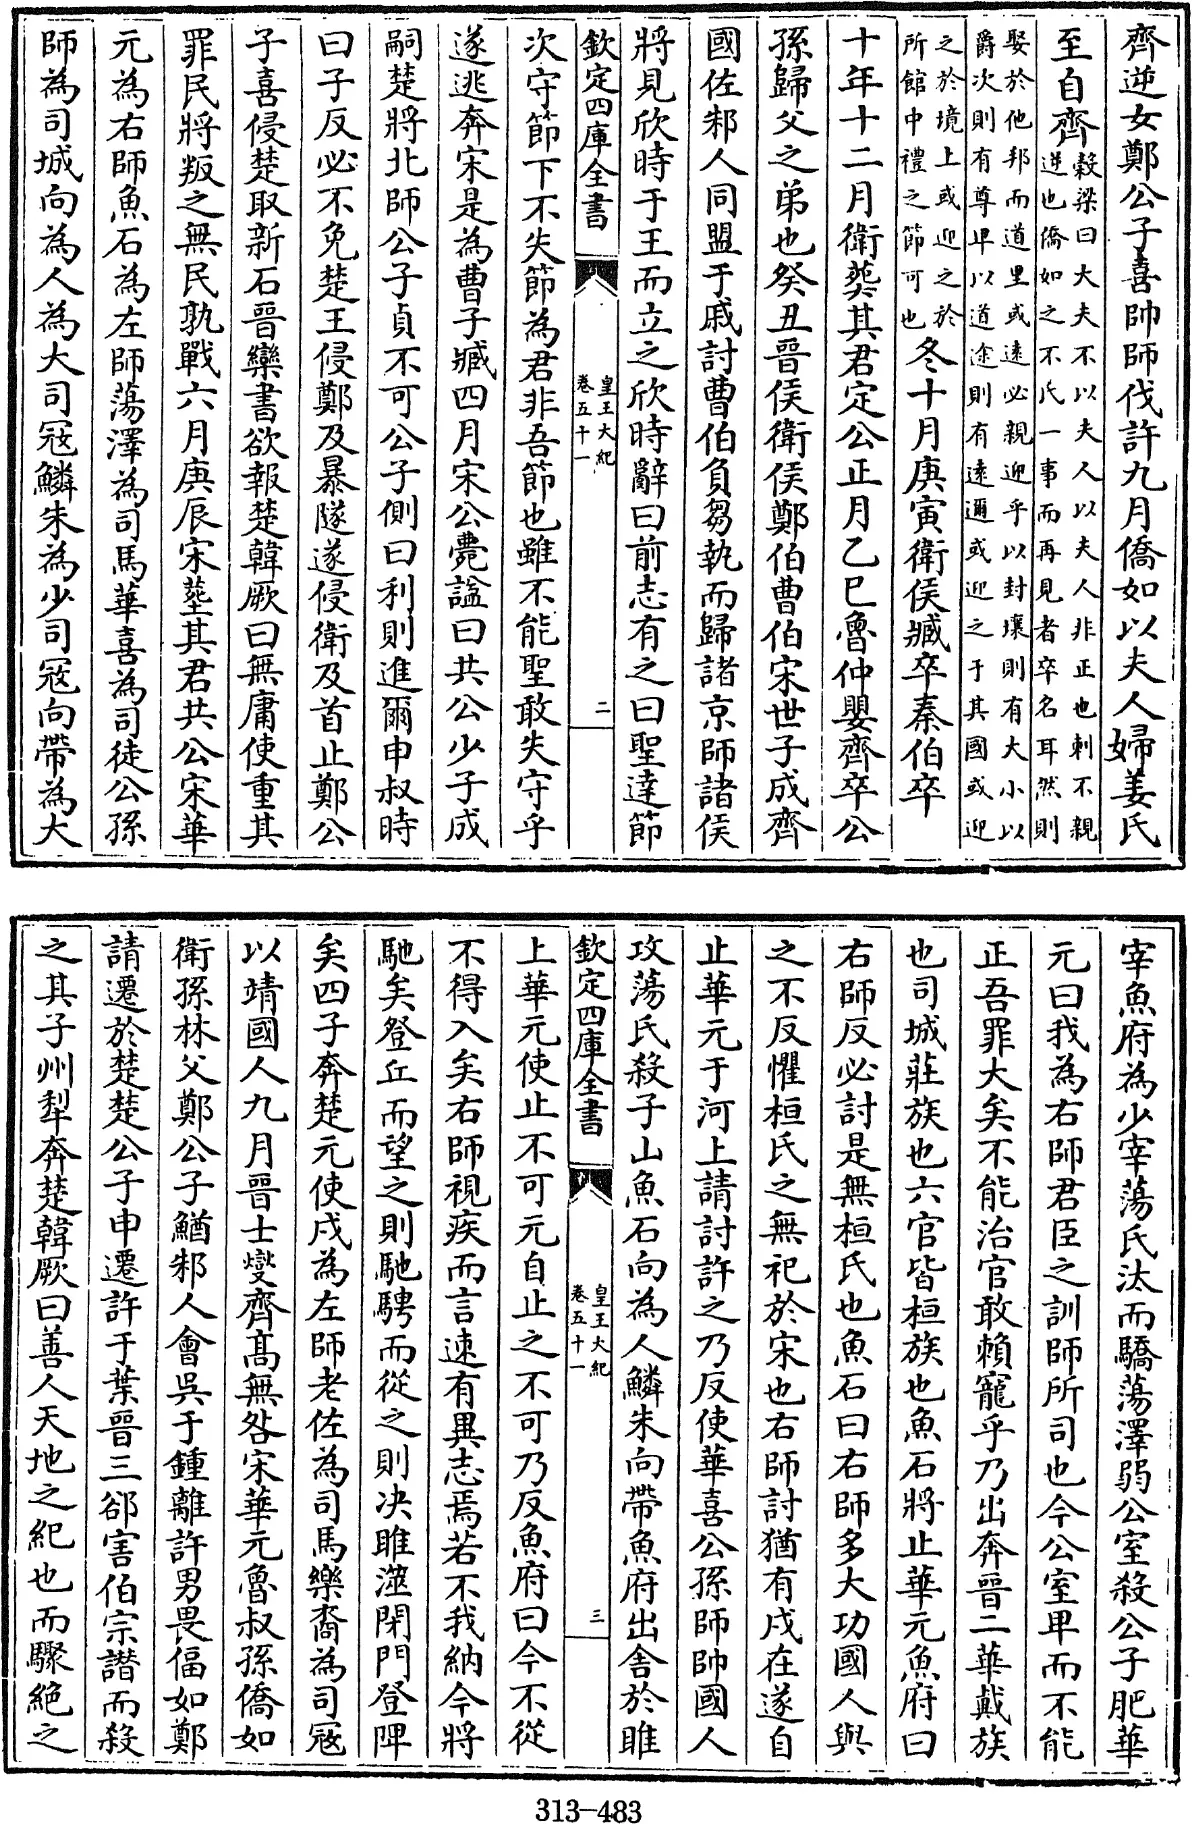 齊逆女鄭公子喜帥師伐許九月僑如以夫人婦姜氏
至自齊榖梁曰大夫不以夫人以夫人非正也刺不親
逆也僑如之不氏一事而再見者卒名耳然則
娶於他邦而道里或逺必親迎乎以封壤則有大小以
爵次則有尊卑以道途則有逺邇或迎之于其國或迎
之於境上或迎之於
所館中禮之節可也冬十月庚寅衛侯臧卒秦伯卒
十年十二月衛葬其君定公正月乙巳魯仲嬰齊卒公
孫歸父之弟也癸丑晉侯衛侯鄭伯曹伯宋世子成齊
國佐邾人同盟于戚討曹伯負芻執而歸諸京師諸侯
將見欣時于王而立之欣時辭曰前志有之曰聖達節
欽定四庫全書
皇王大紀
卷五十一
二
次守節下不失節為君非吾節也雖不能聖敢失守乎
遂逃奔宋是為曹子臧四月宋公薨諡曰共公少子成
嗣楚將北師公子貞不可公子側曰利則進爾申叔時
曰子反必不免楚王侵鄭及暴隧遂侵衛及首止鄭公
子喜侵楚取新石晉欒書欲報楚韓厥曰無庸使重其
罪民將叛之無民孰戰六月庚辰宋塟其君共公宋華
元為右師魚石為左師蕩澤為司馬華喜為司徒公孫
師為司城向為人為大司冦鱗朱為少司冦向帶為大
宰魚府為少宰蕩氏汰而驕蕩澤弱公室殺公子肥華
元曰我為右師君臣之訓師所司也今公室卑而不能
正吾罪大矣不能治官敢賴寵乎乃出奔晉二華戴族
也司城莊族也六官皆桓族也魚石將止華元魚府曰
右師反必討是無桓氏也魚石曰右師多大功國人與
之不反懼桓氏之無祀於宋也右師討猶有戍在遂自
止華元于河上請討許之乃反使華喜公孫師帥國人
攻蕩氏殺子山魚石向為人鱗朱向帶魚府出舍於睢
欽定四庫全書
皇王大紀
卷五十一
三
上華元使止不可元自止之不可乃反魚府曰今不從
不得入矣右師視疾而言速有異志焉若不我納今將
馳矣登丘而望之則馳騁而從之則决睢澨閉門登陴
矣四子奔楚元使戍為左師老佐為司馬樂裔為司冦
以靖國人九月晉士燮齊髙無咎宋華元魯叔孫僑如
衛孫林父鄭公子鰌邾人會吳于鍾離許男畏偪如鄭
請遷於楚楚公子申遷許于葉晉三郤害伯宗譖而殺
之其子州犁奔楚韓厥曰善人天地之紀也而驟絶之
313-483